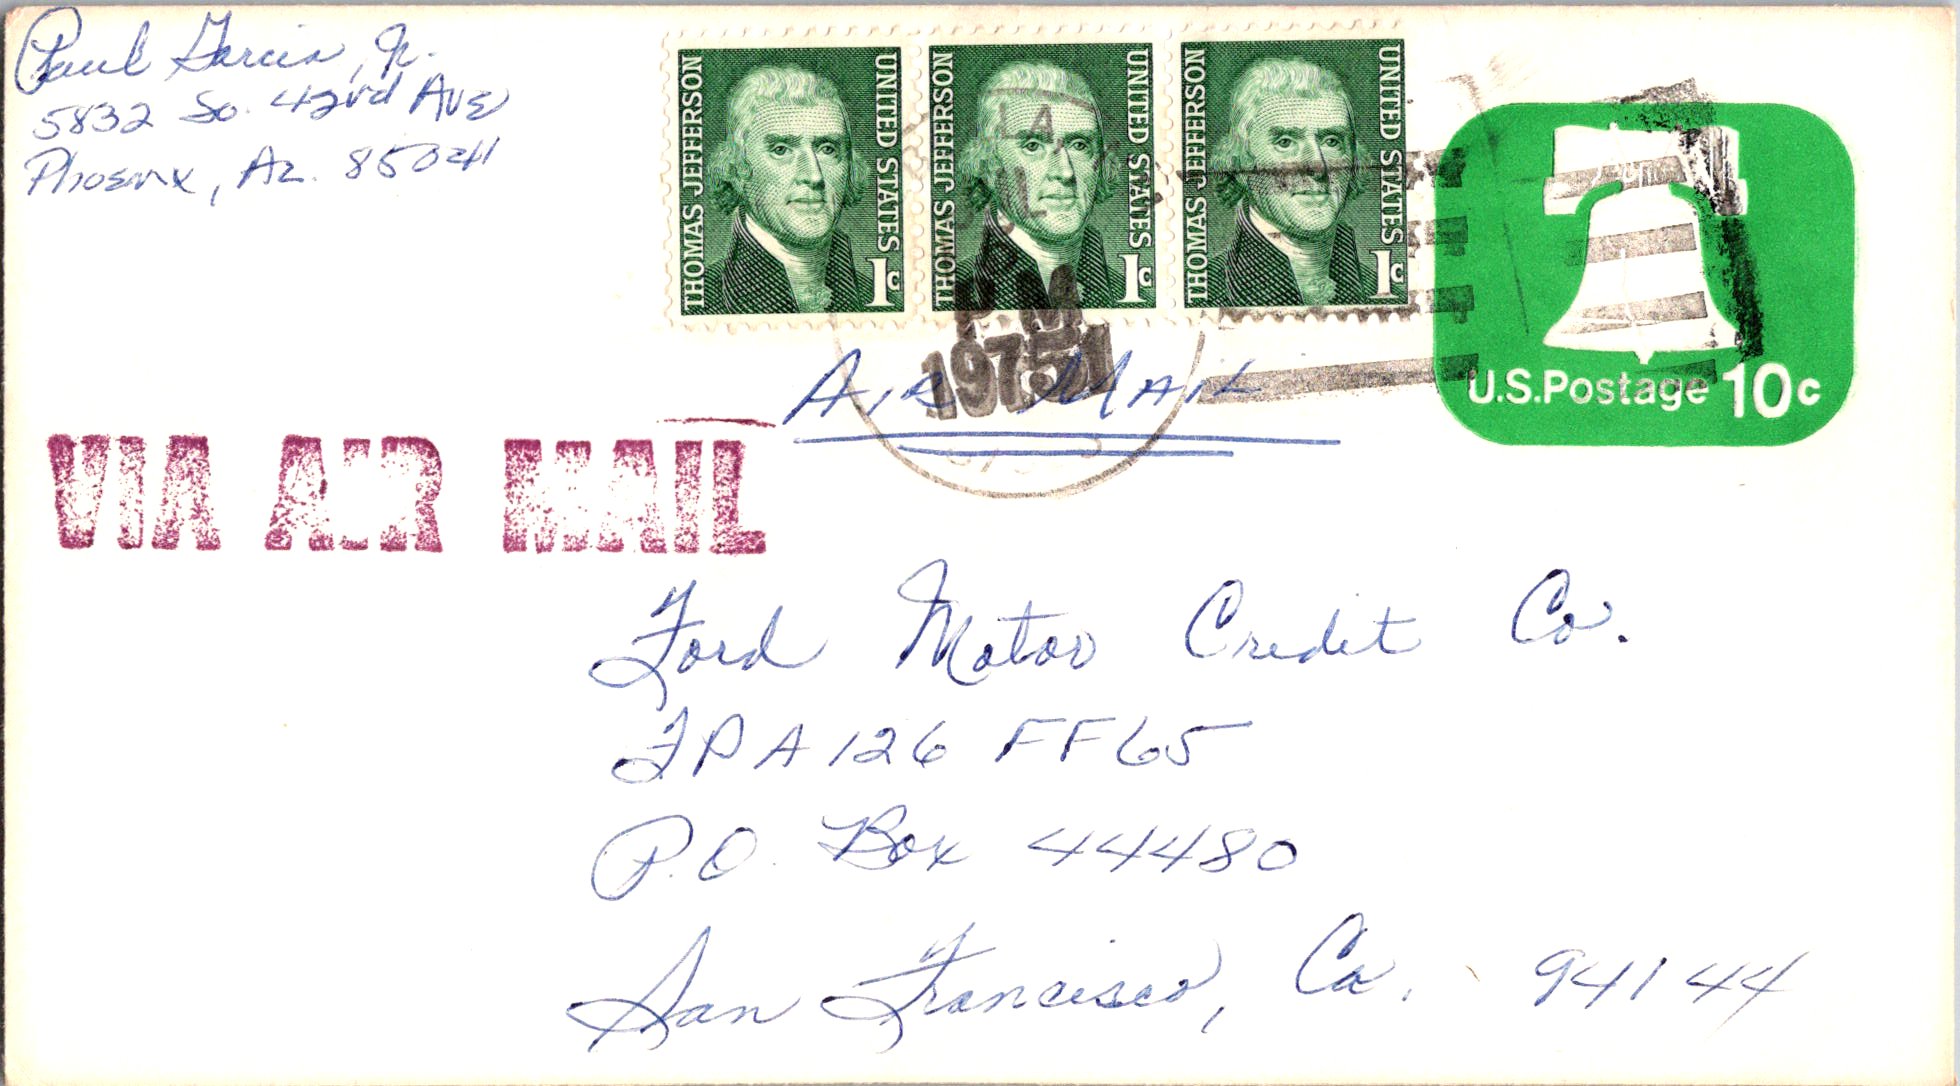 Paul Garcia, Jr.
5832 So. 42rd Ave
Phoenix, Az. 85041
THOMAS JEFFERSON
UNITED STATES
1c
THOMAS JEFFERSON
UNITED STATES
1c
THOMAS JEFFERSON
UNITED STATES
1c
U.S.Postage 10c
PM
1975
AIR MAIL
VIA AIR MAIL
Ford Motor Credit Co.
FPA126 FF65
P.O. Box 44480
San Francisco, Ca. 94144